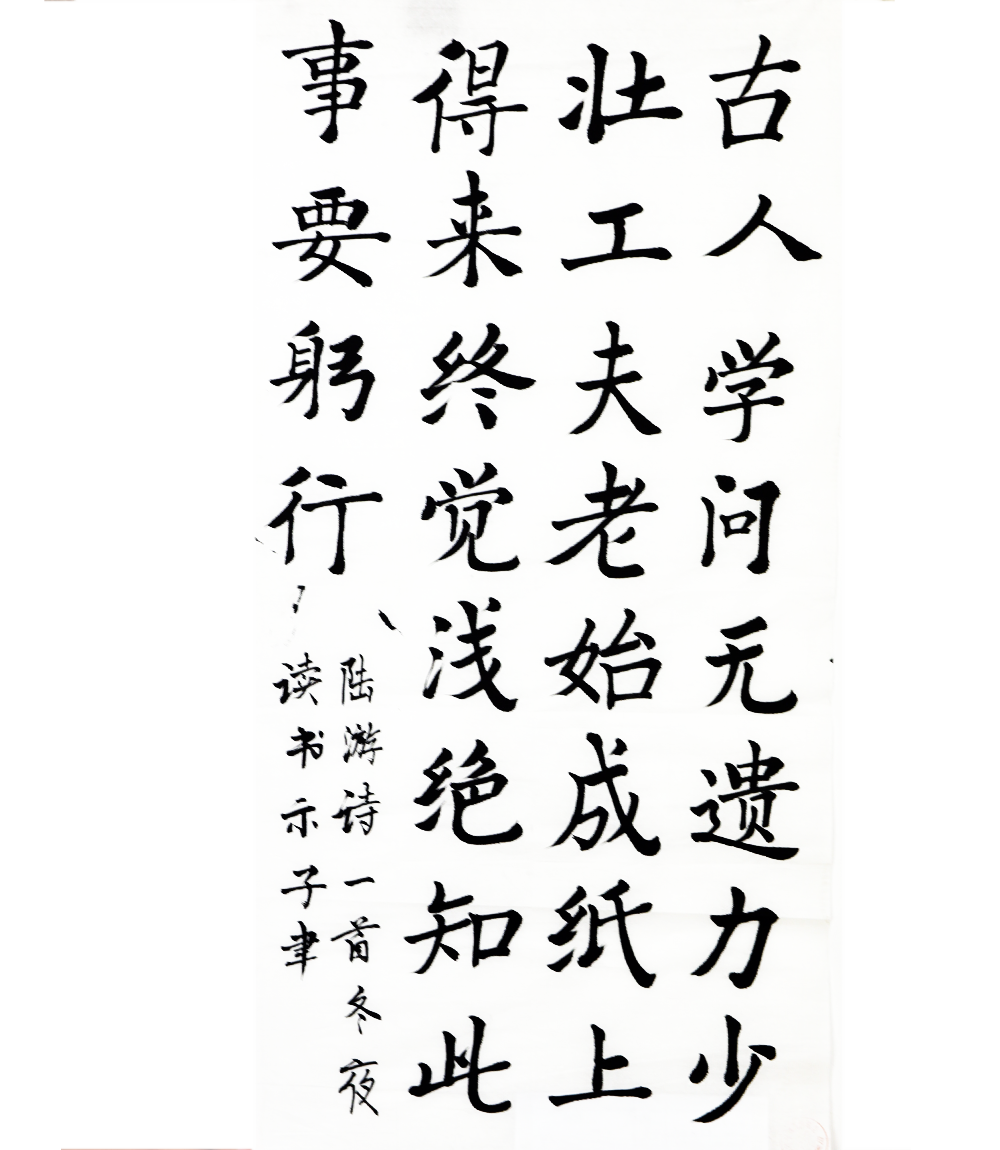 古人学问无遗力少
壮工夫老始成纸上
得来终觉浅绝知此
事要躬行
陆游诗一首冬夜
读书示子聿